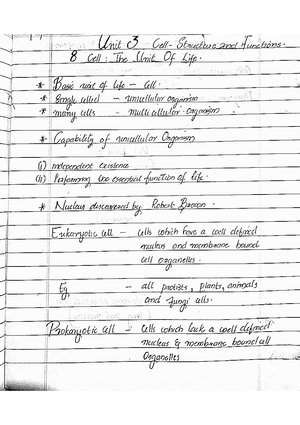 Unit 3 Cell - Structure and Functions.
8 Cell : The Unit Of Life.
* Basic unit of life - Cell.
* Single celled - unicellular organism
* many cells - multicellular organism
* Capability of unicellular Organism
(i) independent existence
(ii) Performing the essential function of life.
* Nucleus discovered by Robert Brown.
Eukaryotic cell - cells which have a well defined
nucleus and membrane bound
cell organelles.
Eg - all protists, plants, animals
and fungi cells.
Prokaryotic cell - cells which lack a well defined
nucleus & membrane bound cell
Organelles